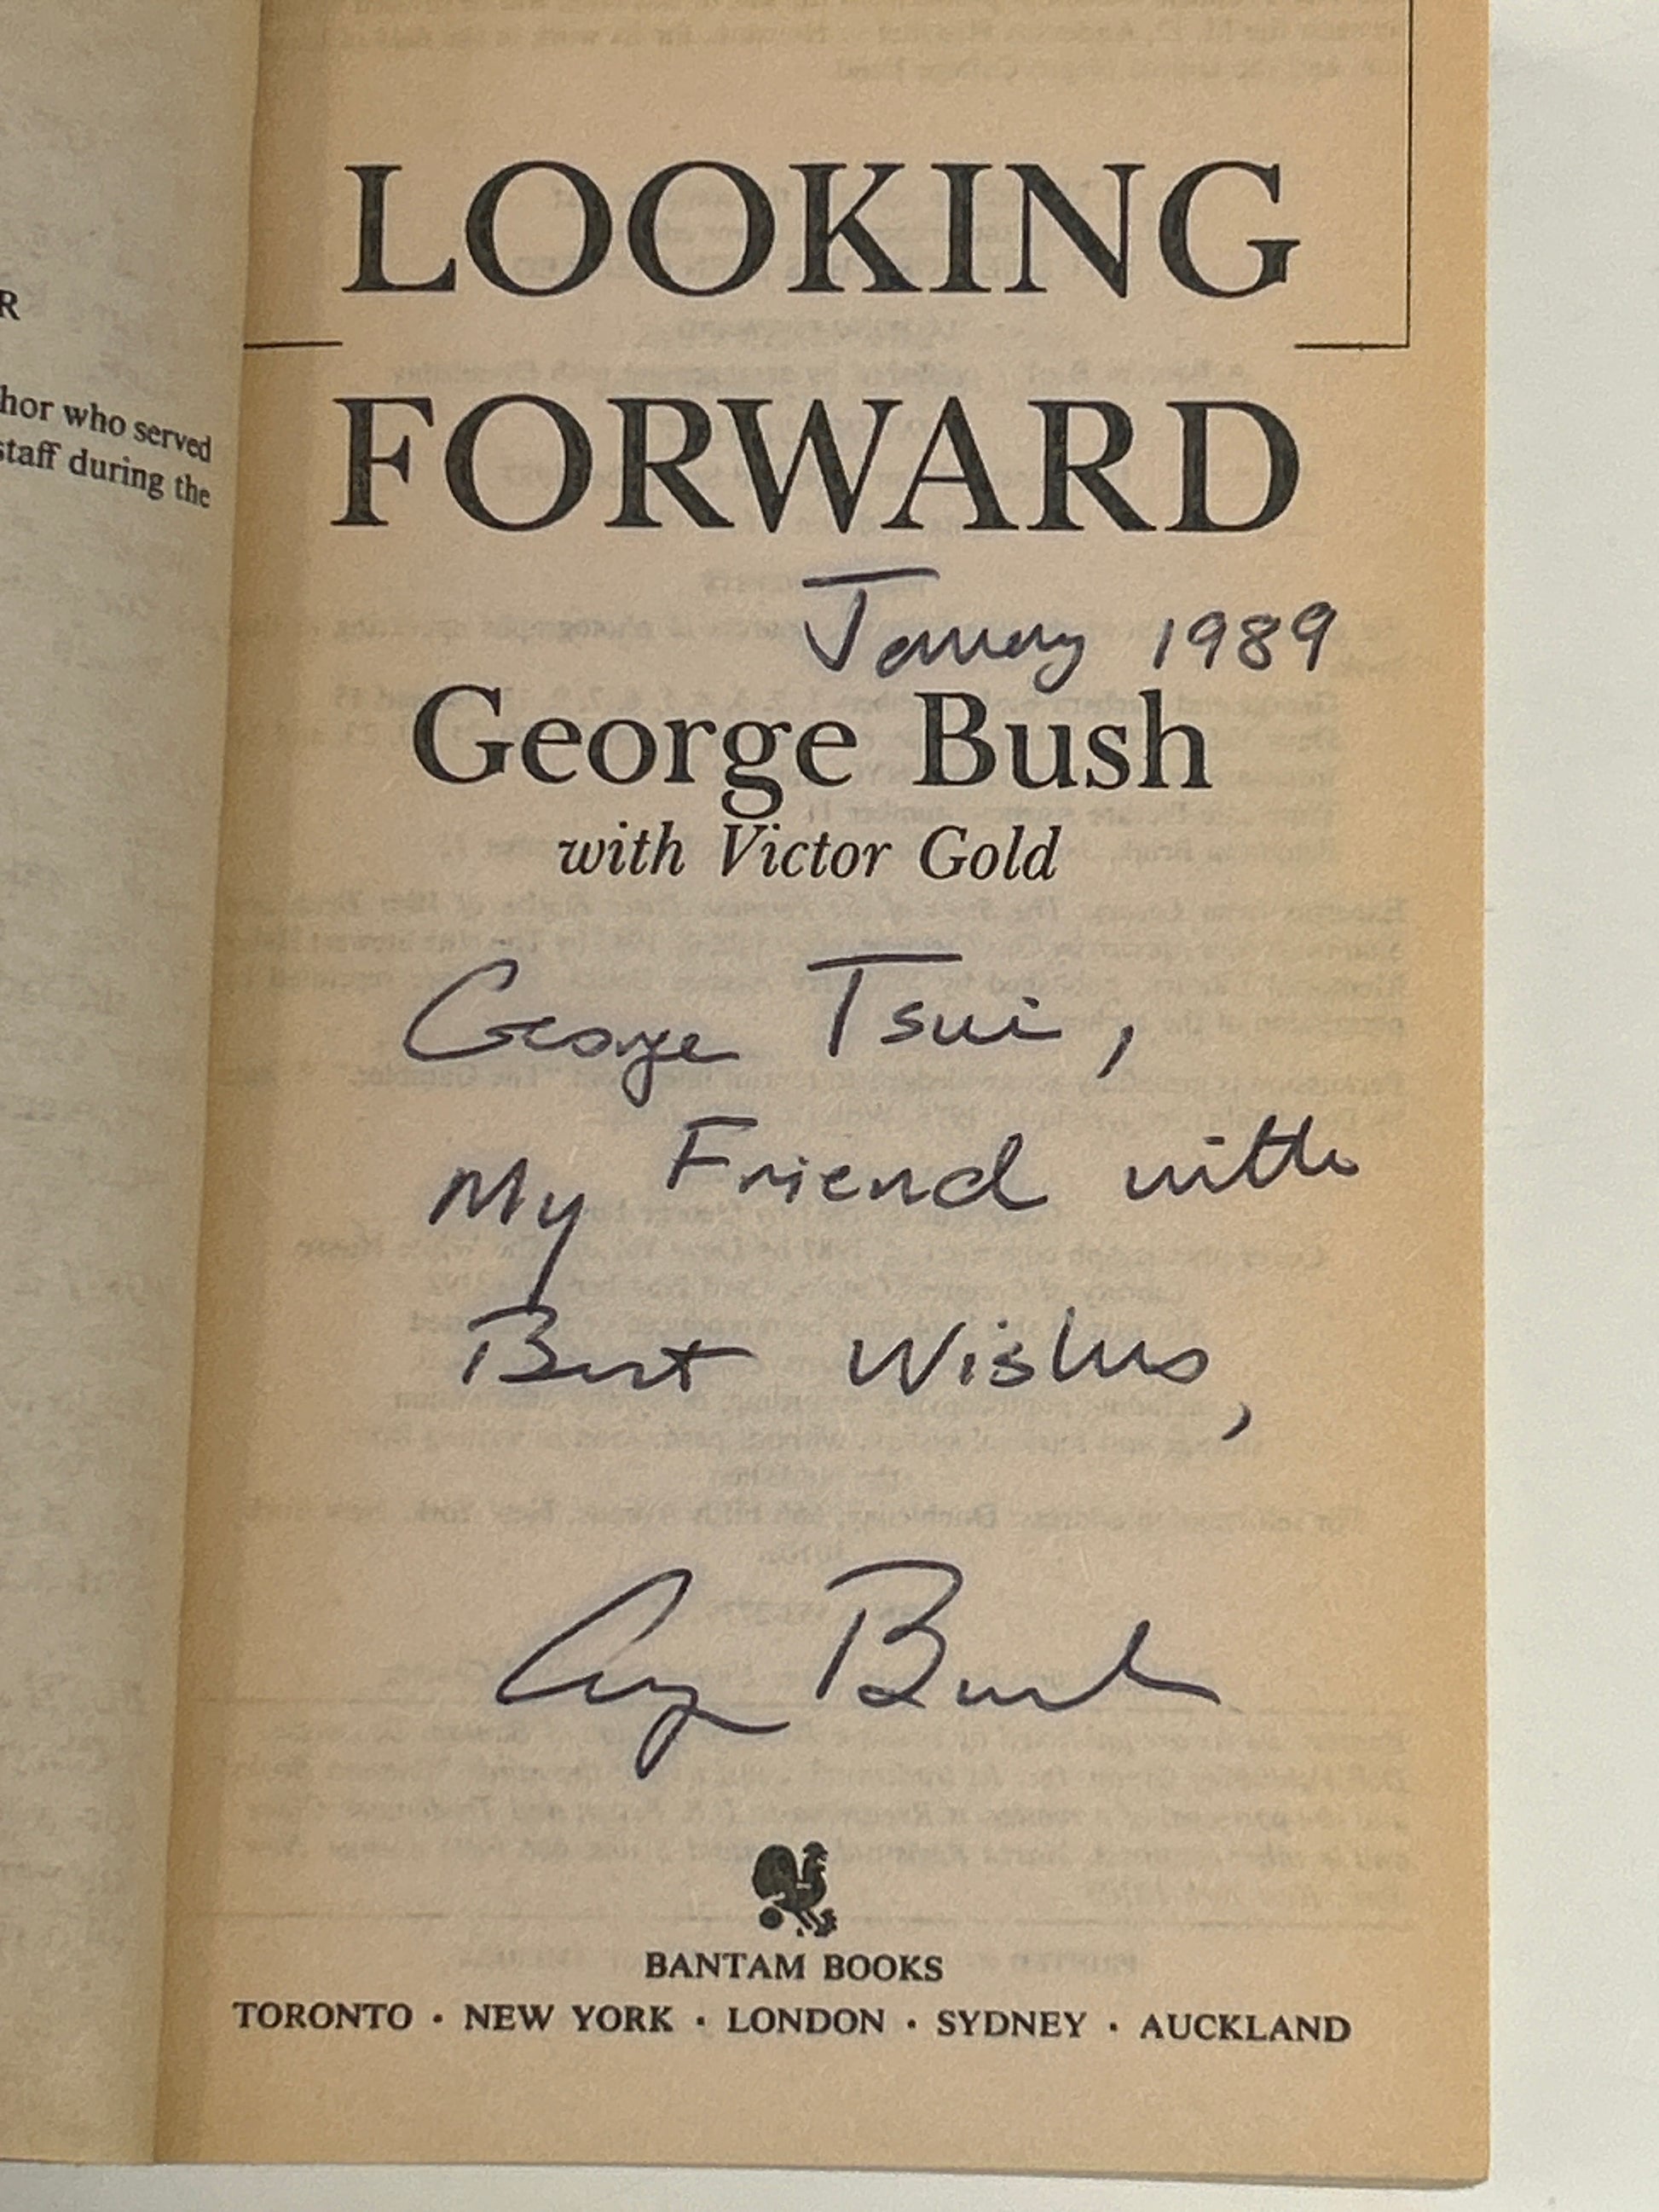 R
hor who served
staff during the
LOOKING
FORWARD
January 1989
George Bush
with Victor Gold
George Tsui,
My Friend with
Best Wishes,
George Bush
BANTAM BOOKS
TORONTO · NEW YORK · LONDON · SYDNEY · AUCKLAND